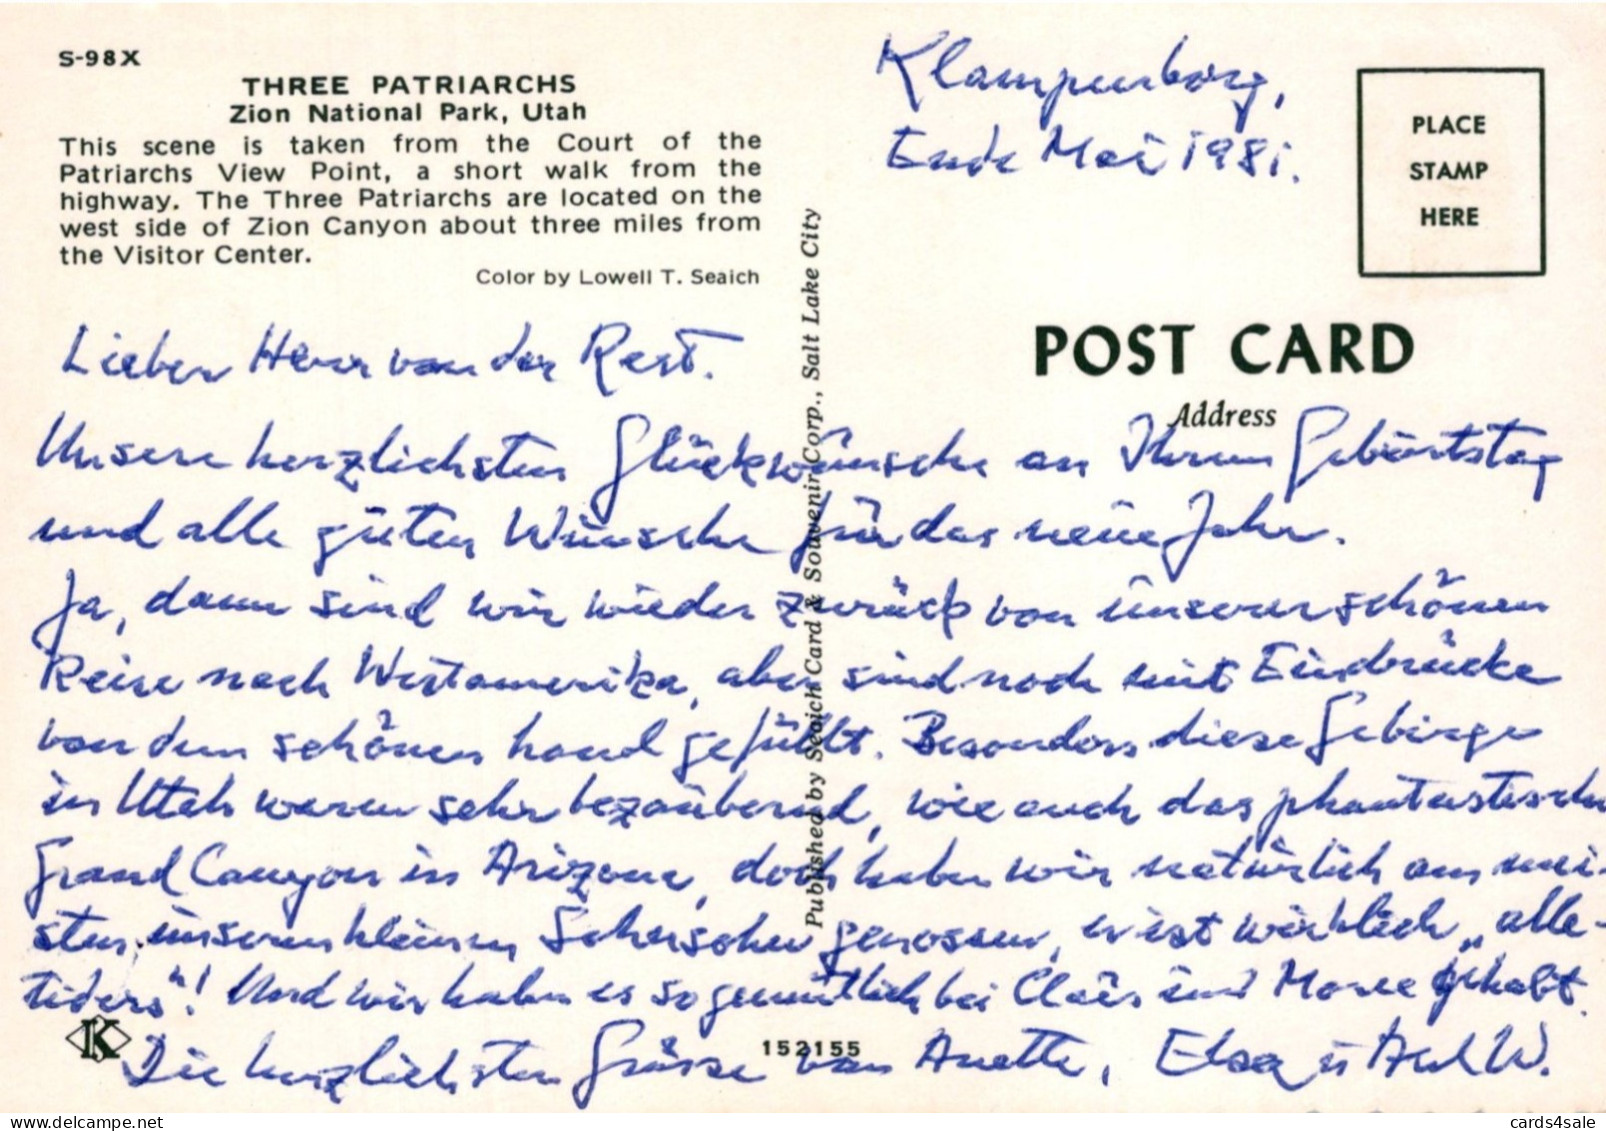 S-98X
THREE PATRIARCHS
Zion National Park, Utah
This scene is taken from the Court of the
Patriarchs View Point, a short walk from the
highway. The Three Patriarchs are located on the
west side of Zion Canyon about three miles from
the Visitor Center.
Color by Lowell T. Seaich
Klampenborg,
Ende Mai 1981.
PLACE
STAMP
HERE
POST CARD
Address
Published by Seaich Card & Souvenir Corp., Salt Lake City
Lieber Herr van der Rest.
Unsere herzlichsten Glückwünsche an Ihrem Geburtstag
und alle guten Wünsche für das neue Jahr.
Ja, dann sind wir wieder zurück von unserer schönen
Reise nach Westamerika, aber sind noch mit Eindrücke
von dem schönen hand gefüllt. Besonders diese Gebirge
in Utah waren sehr bezaubernd, wie auch das phantastische
Grand Canyon in Arizona, doch haben wir natürlich am mei-
sten unseren kleinen genossen, er ist wirklich „alle-
tiders"! Und wir haben es so gemütlich bei Claus und gehabt.
Die herzlichsten Grüsse von Anette, Elsa u W.
K
152155
cards4sale